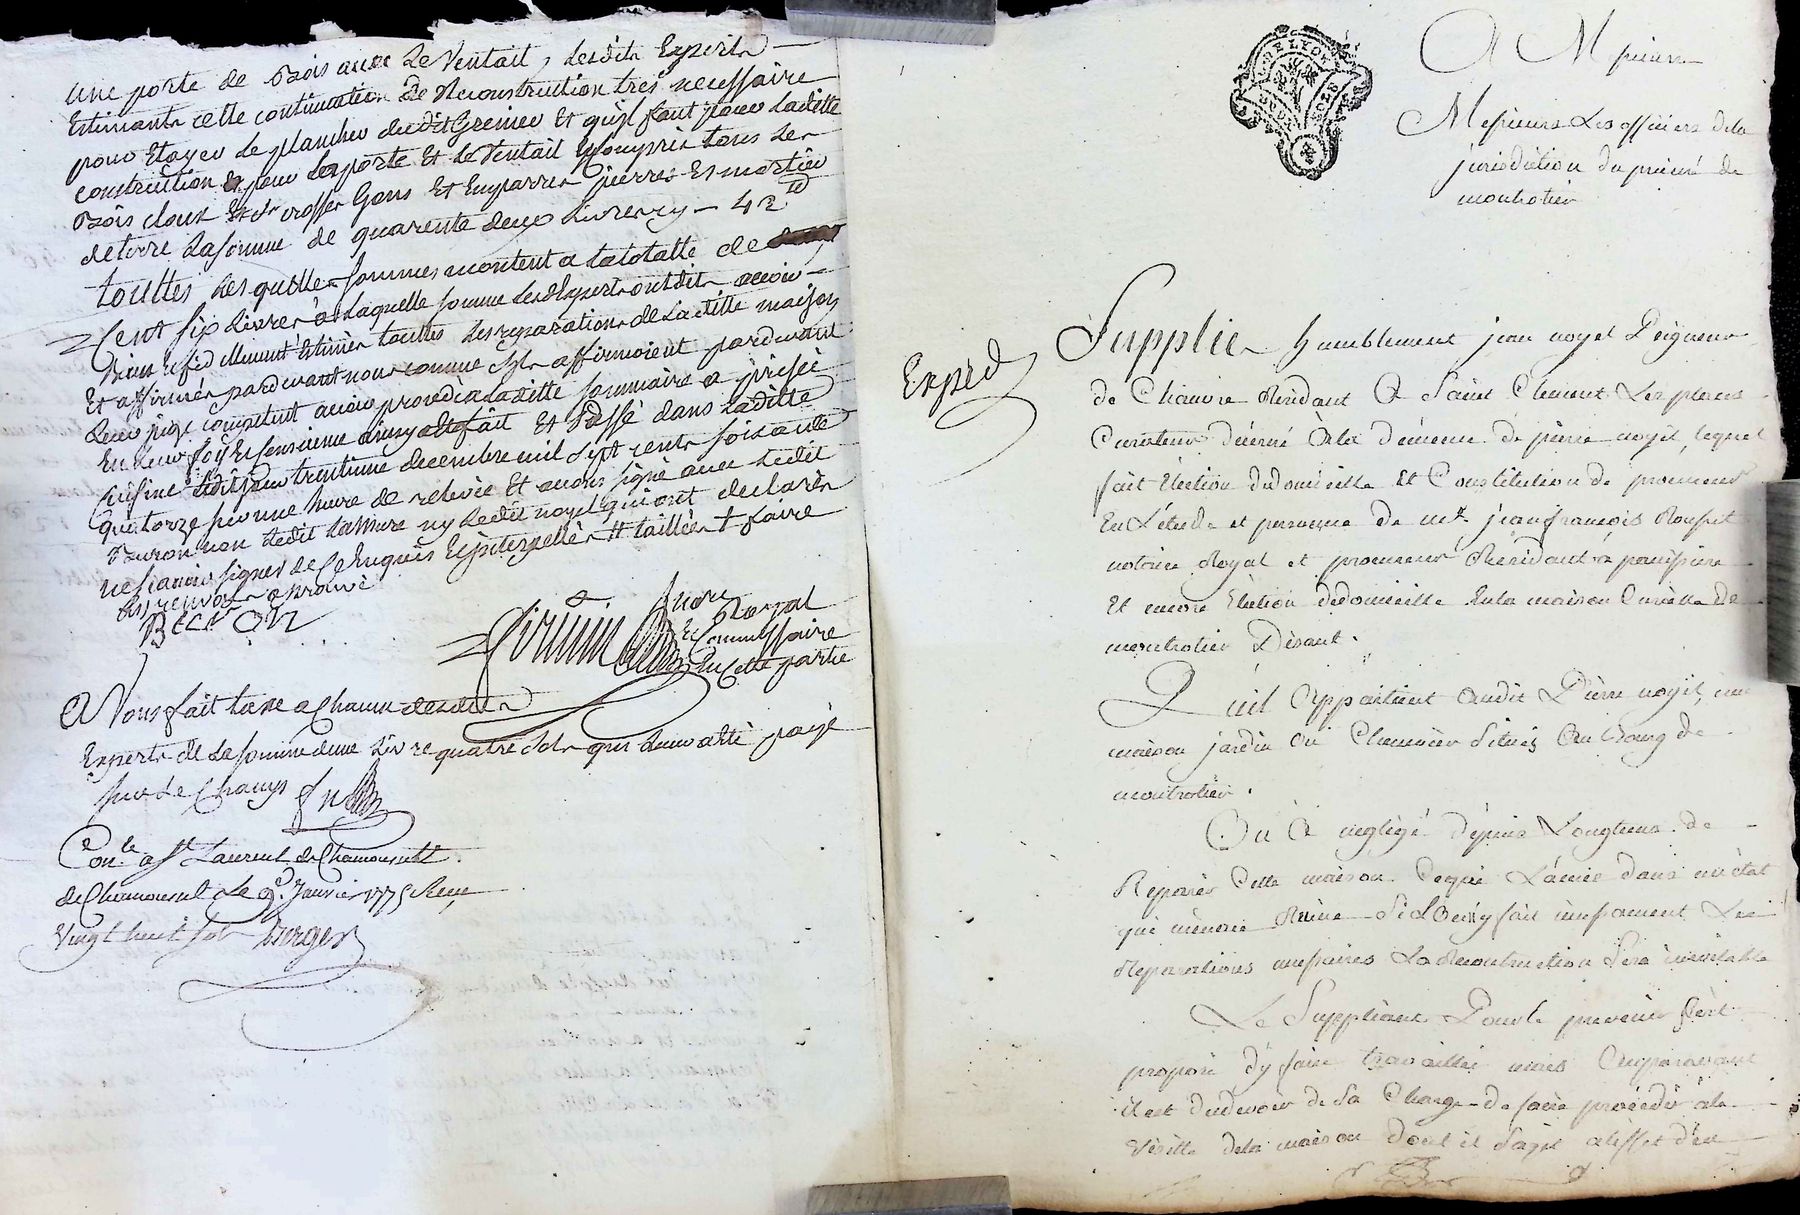 une porte de Bois avec le Ventail, lesdits Experts
Estimants cette continuation de Reconstruction très necessaire
pour Etayer le plancher dudit Grenier Et qu'il faut pour laditte
construction Et pour la porte Et le Ventail y compris tous les
Bois cloux Et crosses Gons Et Emparres pierres Et mortier
de terre La somme de quarente deux Livres cy — 42 ld
touttes lesquelles sommes montent a la totalle de
Cent six Livres à laquelle somme lesd Experts ont dit avoir
bien Et fidellement Estimés touttes les reparations de laditte maison
Et affirmés pardevant nous comme ils affirmoient pardevant
leur juge competent avoir procédé à laditte sommaire a prisée
En leur foy Et consience ainsy a Eté fait Et Passé dans laditte
Cuisine ledit jour trentieme decembre mil sept cents soixante
quatorze sur une heure de relevée Et avons signé avec ledit
non ledit ny ledit noyel qui ont declarés
ne sçavoir signer de ce Enquis Et interpellés # taillées + faire
les renvois aprouvé
Royal
Et Commissaire
En cette partie
A Nous fait taxe a Chacun desdits
Experts de la somme d'une Livre quatre sols qui leur a eté payé
sur le Champ
Con.le a St Laurent de Chamousset
de Chamousset le 9e. Janvier 1775 Reçu
Vingt huit sols Berger
A Messieurs
Messieurs Les officiers de la
jurisdiction du prieuré de
montrotier
Exped
Supplie humblement jean noyel Peigneur
de Chanvre Résidant A Saint Clement Les places
Curateur décerné à la démence de pierre noyel, lequel
fait Election de domicille Et Constitution de procureur
En L'étude et personne de mtre jean françois
notaire Royal et procureur Résidant a
Et encore Election de domicille En la maison Curialle de
montrotier Disant.
Qu'il Appartient audit Pierre noyel, une
maison jardin ou Chenevier situés Au Bourg de
montrotier.
On A negligé depuis Longtems de
Reparer Cette maison Ce qui L'a mise dans un état
qui menace Ruine Si L'on n'y fait incessament Les
Reparations necessaires La Reconstruction Sera inévitable
Le Suppliant Pour le prevenir s'est
proposé d'y faire travailler mais Auparavant
il est du devoir de Sa Charge de faire procéder à la
Visitte de la maison dont il s'agit a l'effet d'en